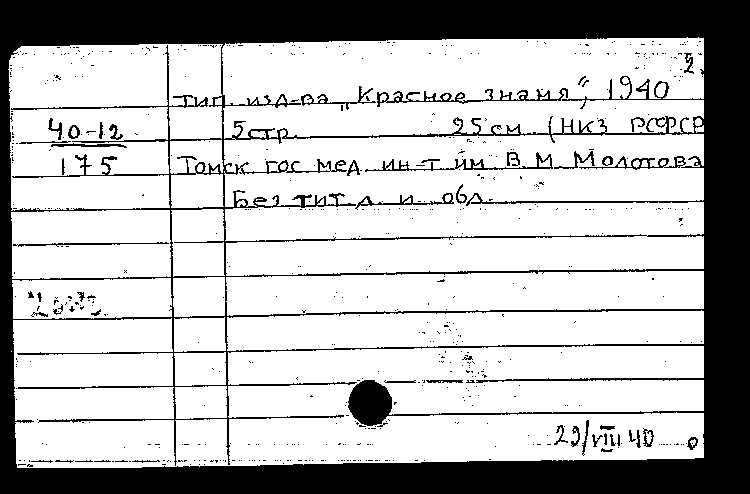 2.
тип. изд-ва „Красное знамя“, 1940
40-12 5 стр. 25 см. (НКЗ РСФСР
175 Томск. гос. мед. ин-т им. В. М. Молотова
Без тит. л. и обл.
29/VIII 40 о